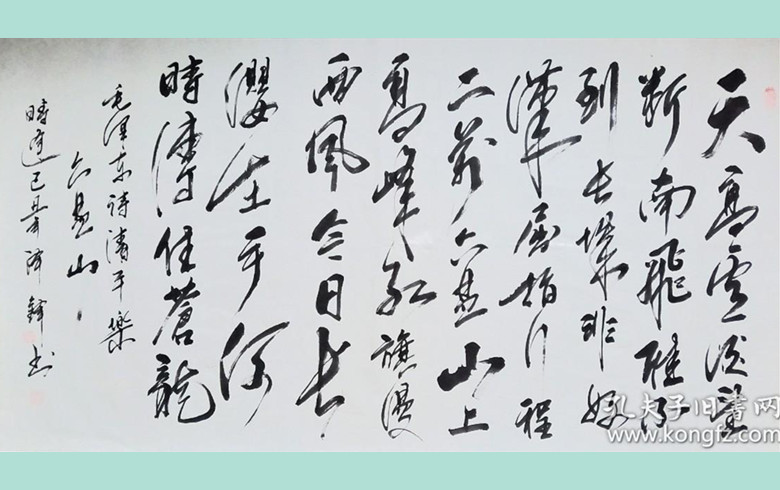 天高雲淡望
断南飛雁不
到長城非好
漢屈指行程
二萬六盤山上
高峰紅旗漫
西風今日長
纓在手何
時縛住蒼龍
毛澤东詩清平樂
六盤山
時逢己 书
孔夫子旧书网
www.kongfz.com